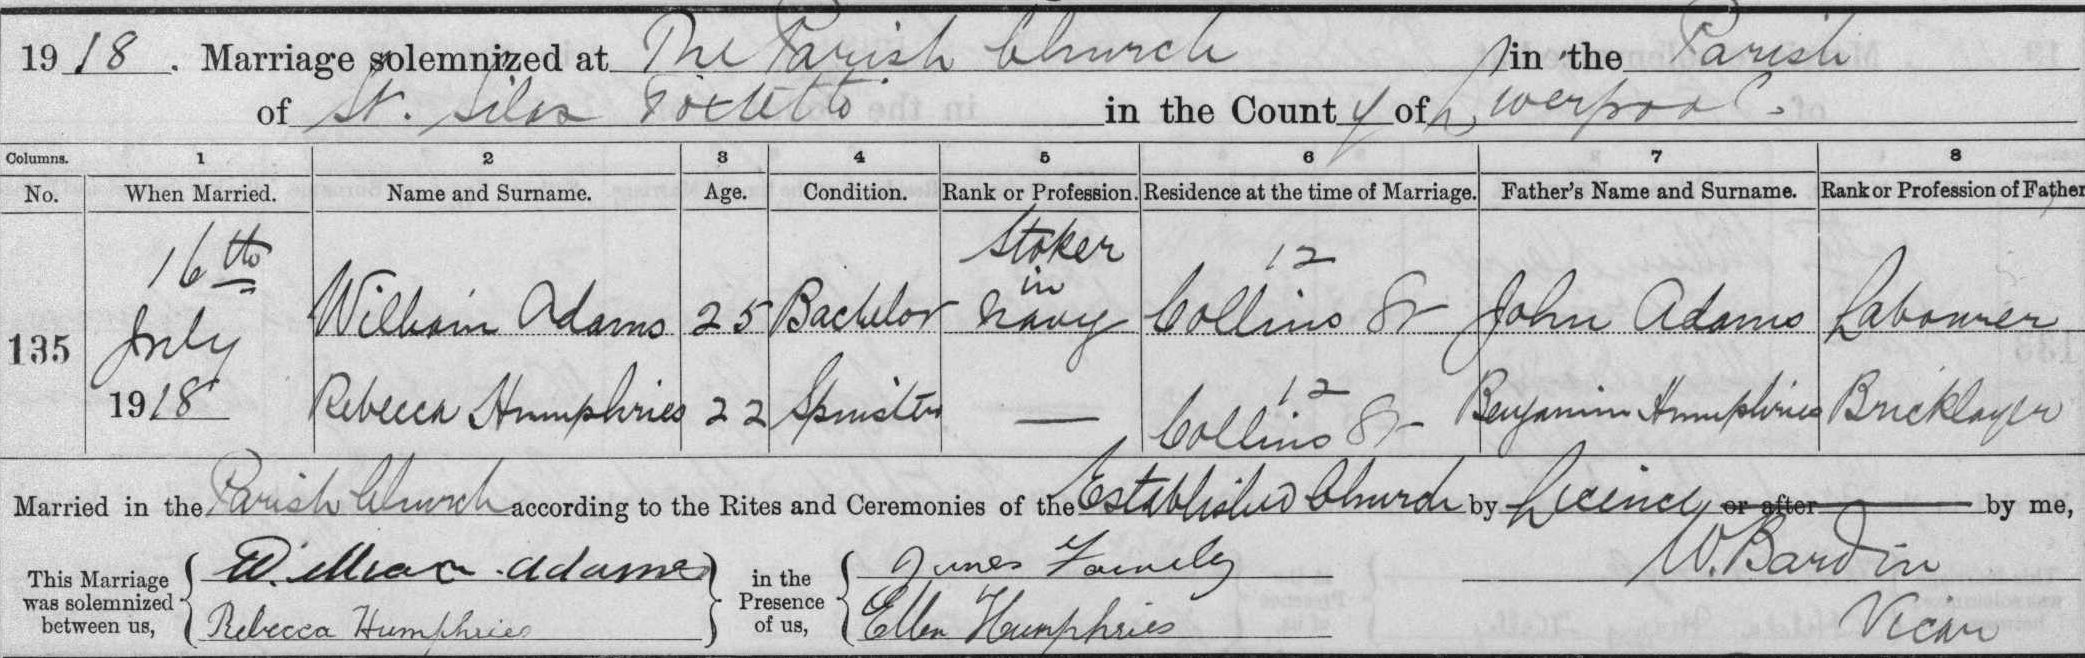 1918. Marriage solemnized at The Parish Church in the Parish
of St. Silas Toxteth in the County of Liverpool.
Columns. 1 2 3 4 5 6 7 8
No. When Married. Name and Surname. Age. Condition. Rank or Profession. Residence at the time of Marriage. Father's Name and Surname. Rank or Profession of Father
135 16th July 1918 William Adams 25 Bachelor Stoker in Navy 12 Collins St John Adams Labourer
Rebecca Humphries 22 Spinster — 12 Collins St Benjamin Humphries Bricklayer
Married in the Parish Church according to the Rites and Ceremonies of the Established Church by Licence or after by me,
This Marriage was solemnized between us, William Adams in the Presence of us, James W. Bardin
Rebecca Humphries Ellen Humphries Vicar